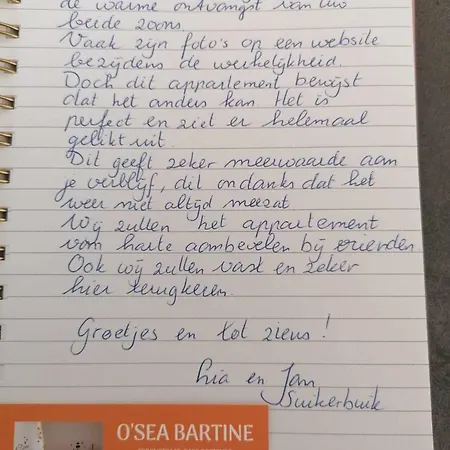 de warme ontvangst van uw
beide zoons.
Vaak zijn foto's op een website
bezijdens de werkelijkheid.
Doch dit appartement bewijst
dat het anders kan. Het is
perfect en ziet er helemaal
gelikt uit.
Dit geeft zeker meerwaarde aan
je verblijf, dit ondanks dat het
weer niet altijd meezat
Wij zullen het appartement
van harte aanbevelen bij vrienden
Ook wij zullen vast en zeker
hier terugkeren.
Groetjes en tot ziens!
Ria en Jan
Suikerbuik
O'SEA BARTINE